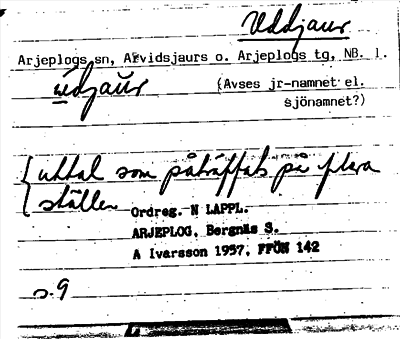 Uddjaur
Arjeplogs sn, Arvidsjaurs o. Arjeplogs tg, NB. l.
údjaŭr
(Avses jr-namnet el.
sjönamnet?)
uttal som påträffats på flera
ställen
Ordreg. N LAPPL.
ARJEPLOG, Bergnäs S.
A Ivarsson 1957, FFÖN 142
s. 9